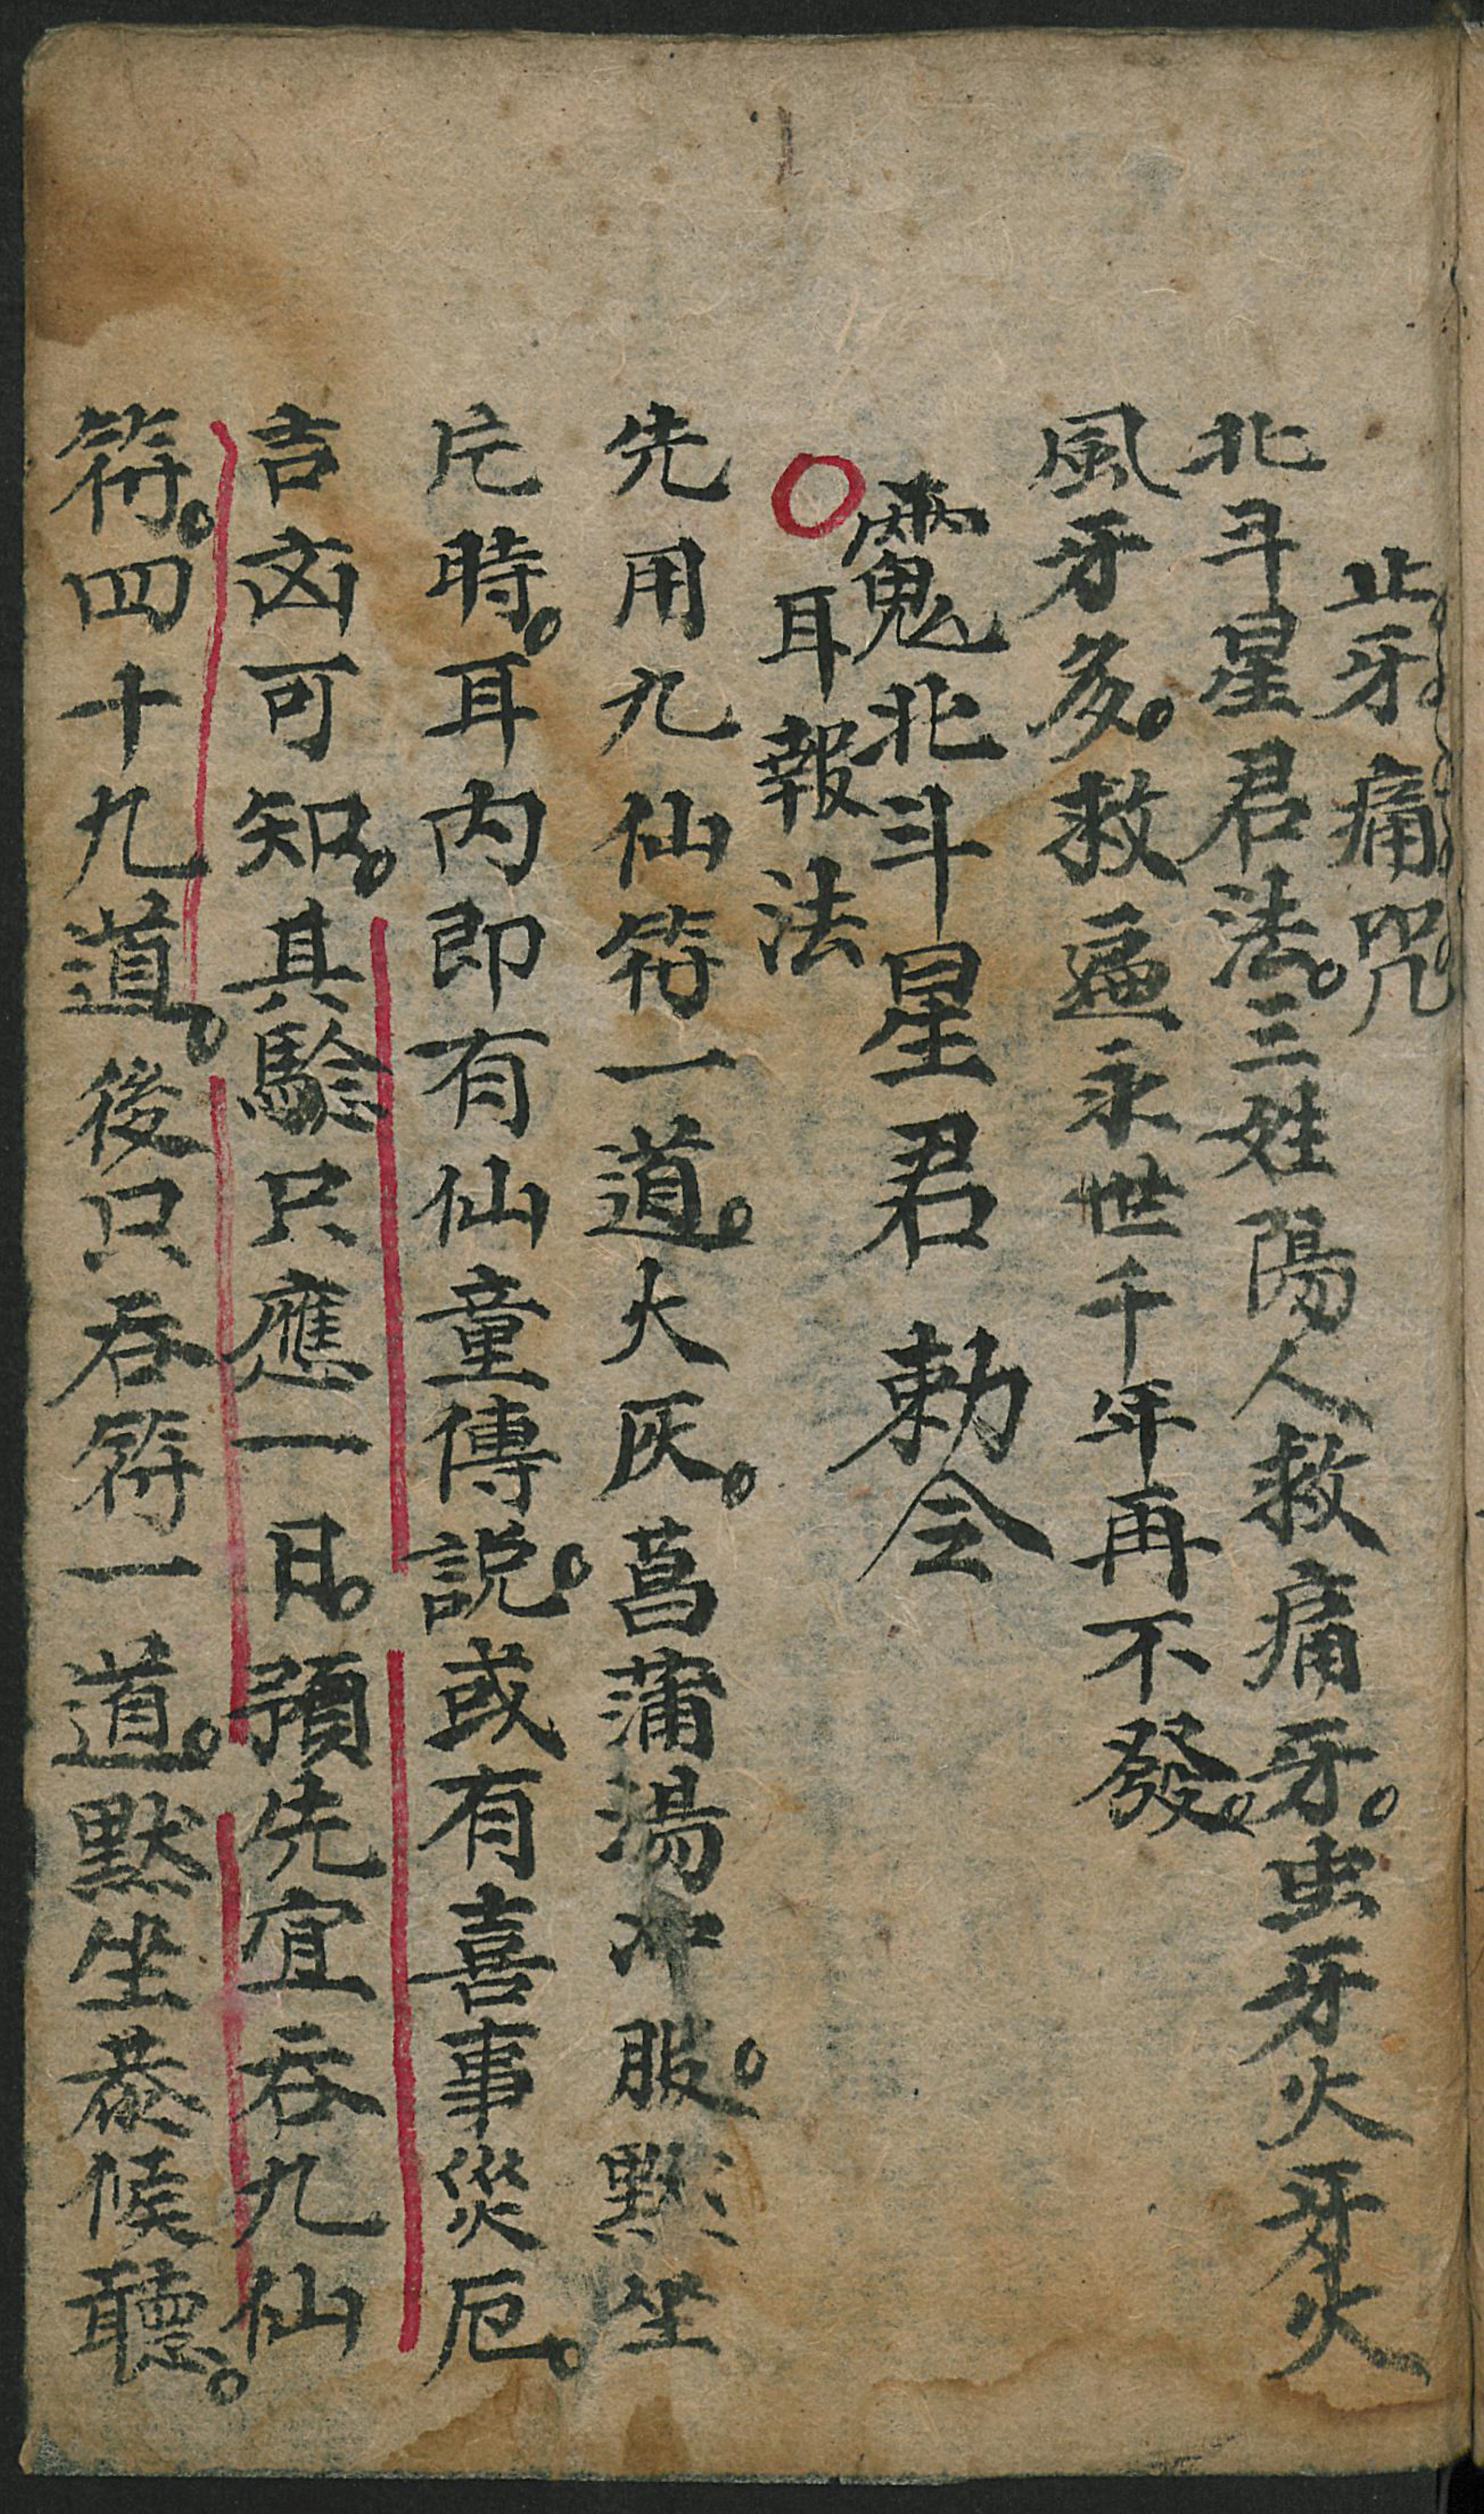 止牙痛咒
北斗星君法。三姓陽人救痛牙。虫牙火牙火
風牙多。救遍永世千年再不發。
北斗星君 勅令
耳報法
先用九仙符一道。火灰。菖蒲湯冲服。默坐
片時。耳内即有仙童傳説。或有喜事災厄。
吉凶可知。其騐只應一日。預先宜吞九仙
符。四十九道。後只吞符一道。默坐恭候聽。